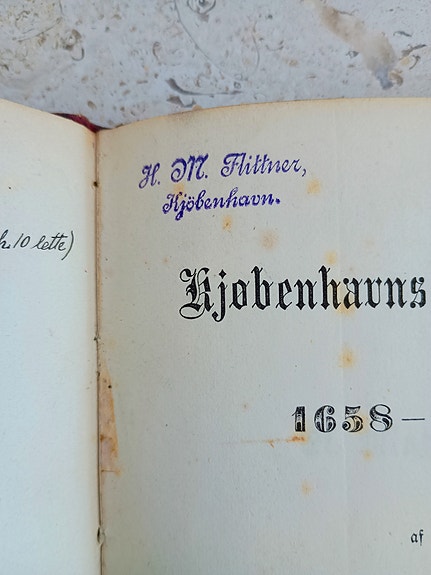 10 lette)
H. M. Flittner,
Kjöbenhavn.
Kjøbenhavns
1658—
af